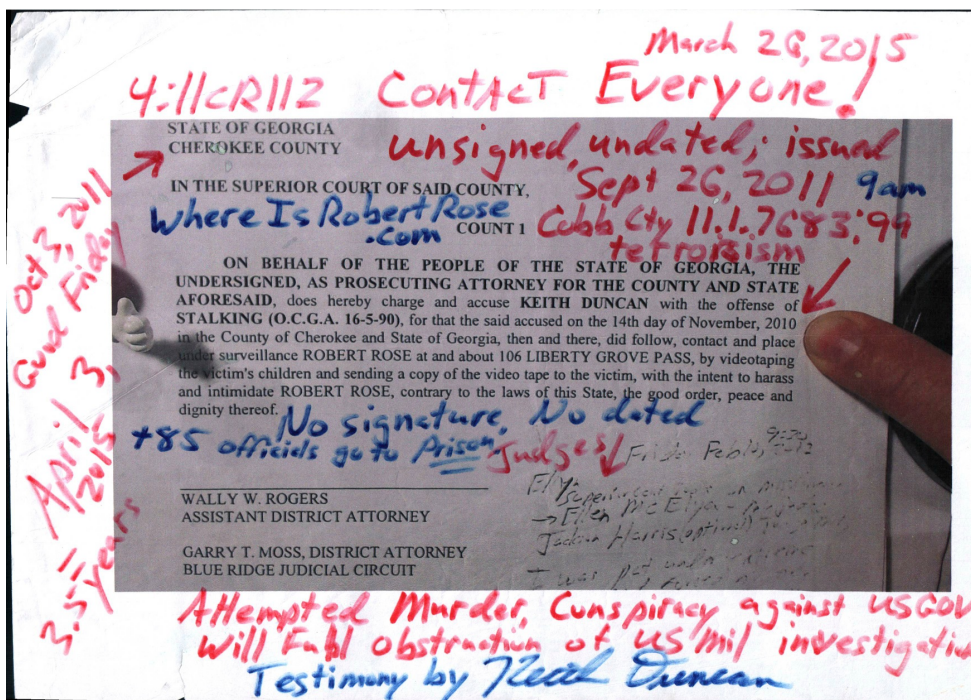 March 26, 2015
4:11CR112 Contact Everyone!
STATE OF GEORGIA
CHEROKEE COUNTY
unsigned, undated; issued
Sept 26, 2011 9am
IN THE SUPERIOR COURT OF SAID COUNTY,
Where Is Robert Rose
.com
COUNT 1
Cobb Cty 11.1.7683.99
terrorism
ON BEHALF OF THE PEOPLE OF THE STATE OF GEORGIA, THE
UNDERSIGNED, AS PROSECUTING ATTORNEY FOR THE COUNTY AND STATE
AFORESAID, does hereby charge and accuse KEITH DUNCAN with the offense of
STALKING (O.C.G.A. 16-5-90), for that the said accused on the 14th day of November, 2010
in the County of Cherokee and State of Georgia, then and there, did follow, contact and place
under surveillance ROBERT ROSE at and about 106 LIBERTY GROVE PASS, by videotaping
the victim's children and sending a copy of the video tape to the victim, with the intent to harass
and intimidate ROBERT ROSE, contrary to the laws of this State, the good order, peace and
dignity thereof.
No signature, No dated
+85 officials go to Prison
Judges
Friday Feb 10,
WALLY W. ROGERS
ASSISTANT DISTRICT ATTORNEY
Ellen McElyea
Jackson Harris (optional)
GARRY T. MOSS, DISTRICT ATTORNEY
BLUE RIDGE JUDICIAL CIRCUIT
I was put under
Oct 3, 2011
Good Friday
April 3,
2015
3.5 years
Attempted Murder, Conspiracy against USGOV
Will Full obstruction of US Mil investigation
Testimony by Keith Duncan